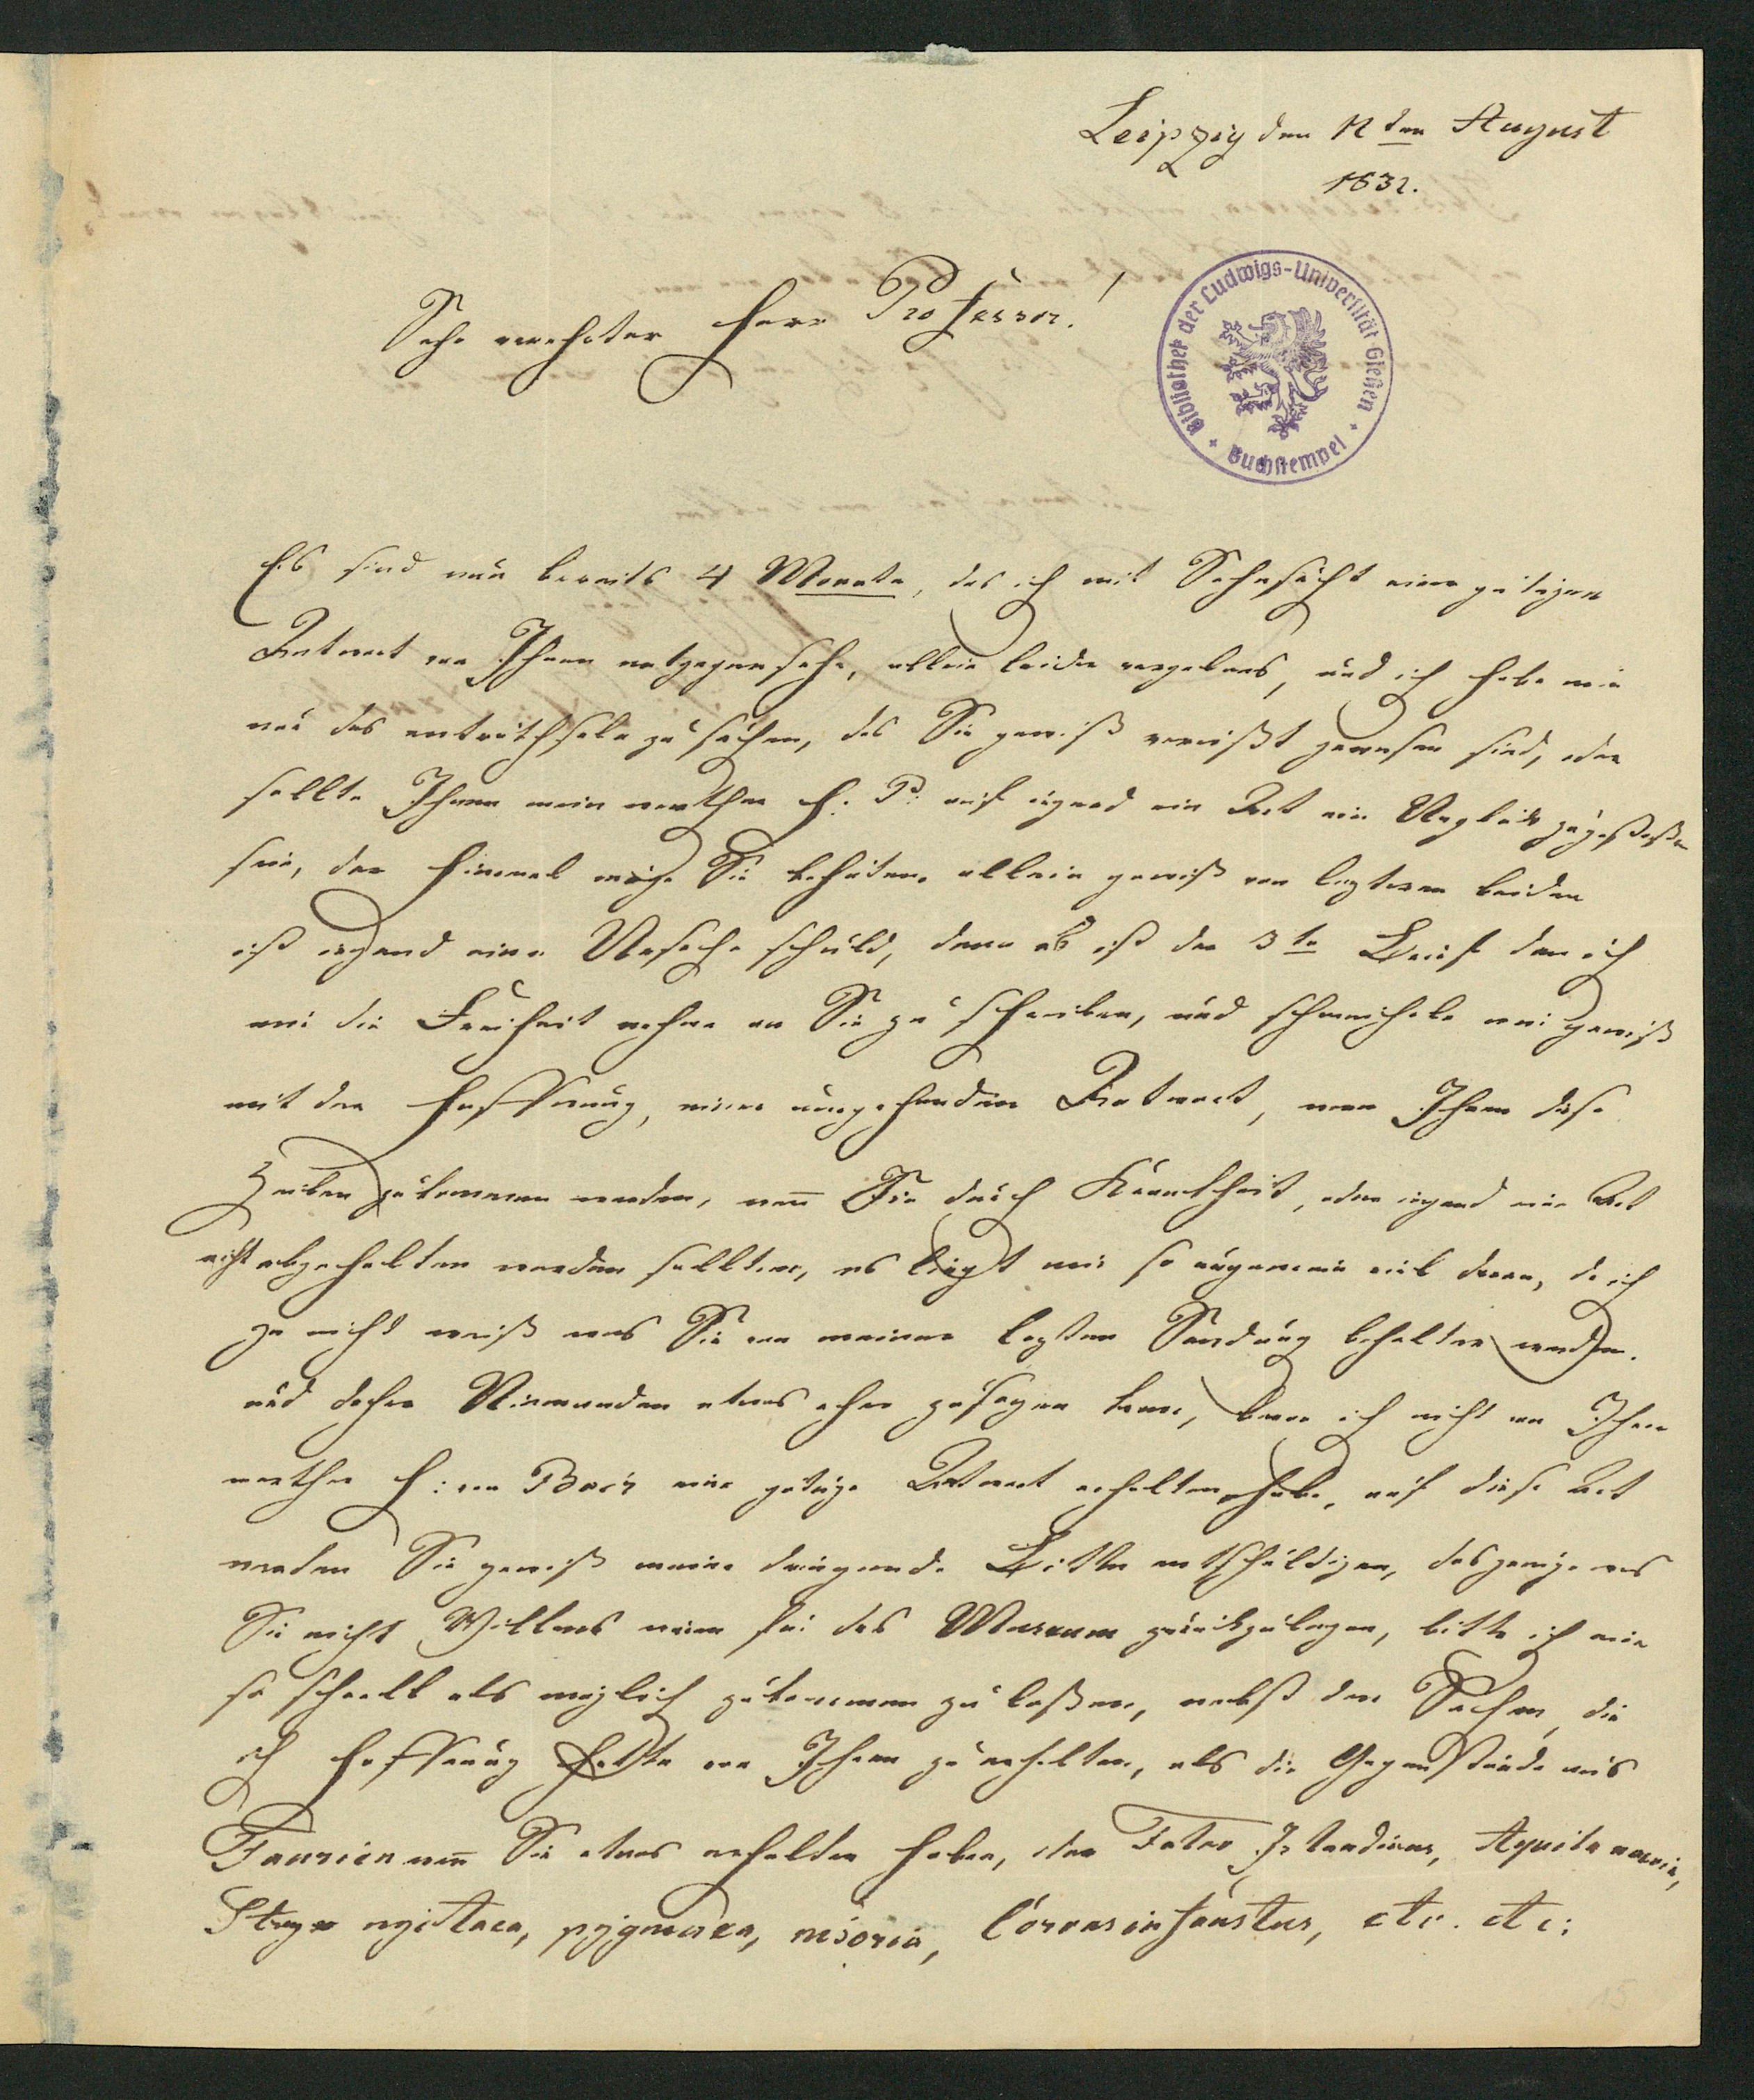 Leipzig den 12ten August
1832.
Sehr verehrter Herr Professor!
Bibliothek der Ludwigs-Universität Gießen
Buchstempel
Es sind nun bereits 4 Monate, das ich mit Sehnsucht einer gütigen
Antwort von Ihnen entgegensehe, allein leider vergebens, und ich habe mir
nur das enträthseln zu suchen, das Sie gewiß verreißt gewesen sind, oder
sollte Ihnen mein werther H. P. auf irgend ein Art ein Unglück zugestoßen
sein, der Himmel möge Sie behüten, allein gewiß von leztern beiden
ist irgend eine Ursache schuld, denn es ist der 3te Brief den ich
mir die Freiheit nehme an Sie zu schreiben, und schmeichele mir gewiß
mit der Hoffnung, einer umgehenden Antwort, wen Ihnen diese
Zeilen zukommen werden, wen̅ Sie durch Kranckheit, oder irgend eine Art
nicht abgehalten werden sollten, es liegt mir so ungemein viel daran, da ich
ja nicht weiß was Sie von meiner lezten Sendung behalten werden.
und daher Niemanden etwas eher zusagen kann, bevor ich nicht von Ihnen
werther H: eine gütige Antwort erhalten habe, auf diese Art
werden Sie gewiß meine dringende Bitte entschuldigen, dasjenige was
Sie nicht Willens wären für das Museum zurückzulegen, bitte ich mir
so schnell als möglich zukommen zu laßen, nebst den Sachen, die
ich Hoffnung hatte von Ihnen zu erhalten, als die Gegenstände aus
Taurien wen̅ Sie etwas erhalten haben, oder Falco Islandicus, Aquila naevia,
Stryx nyctaea, pygmaea, nisoria, Corvus infaustus, etc. etc: